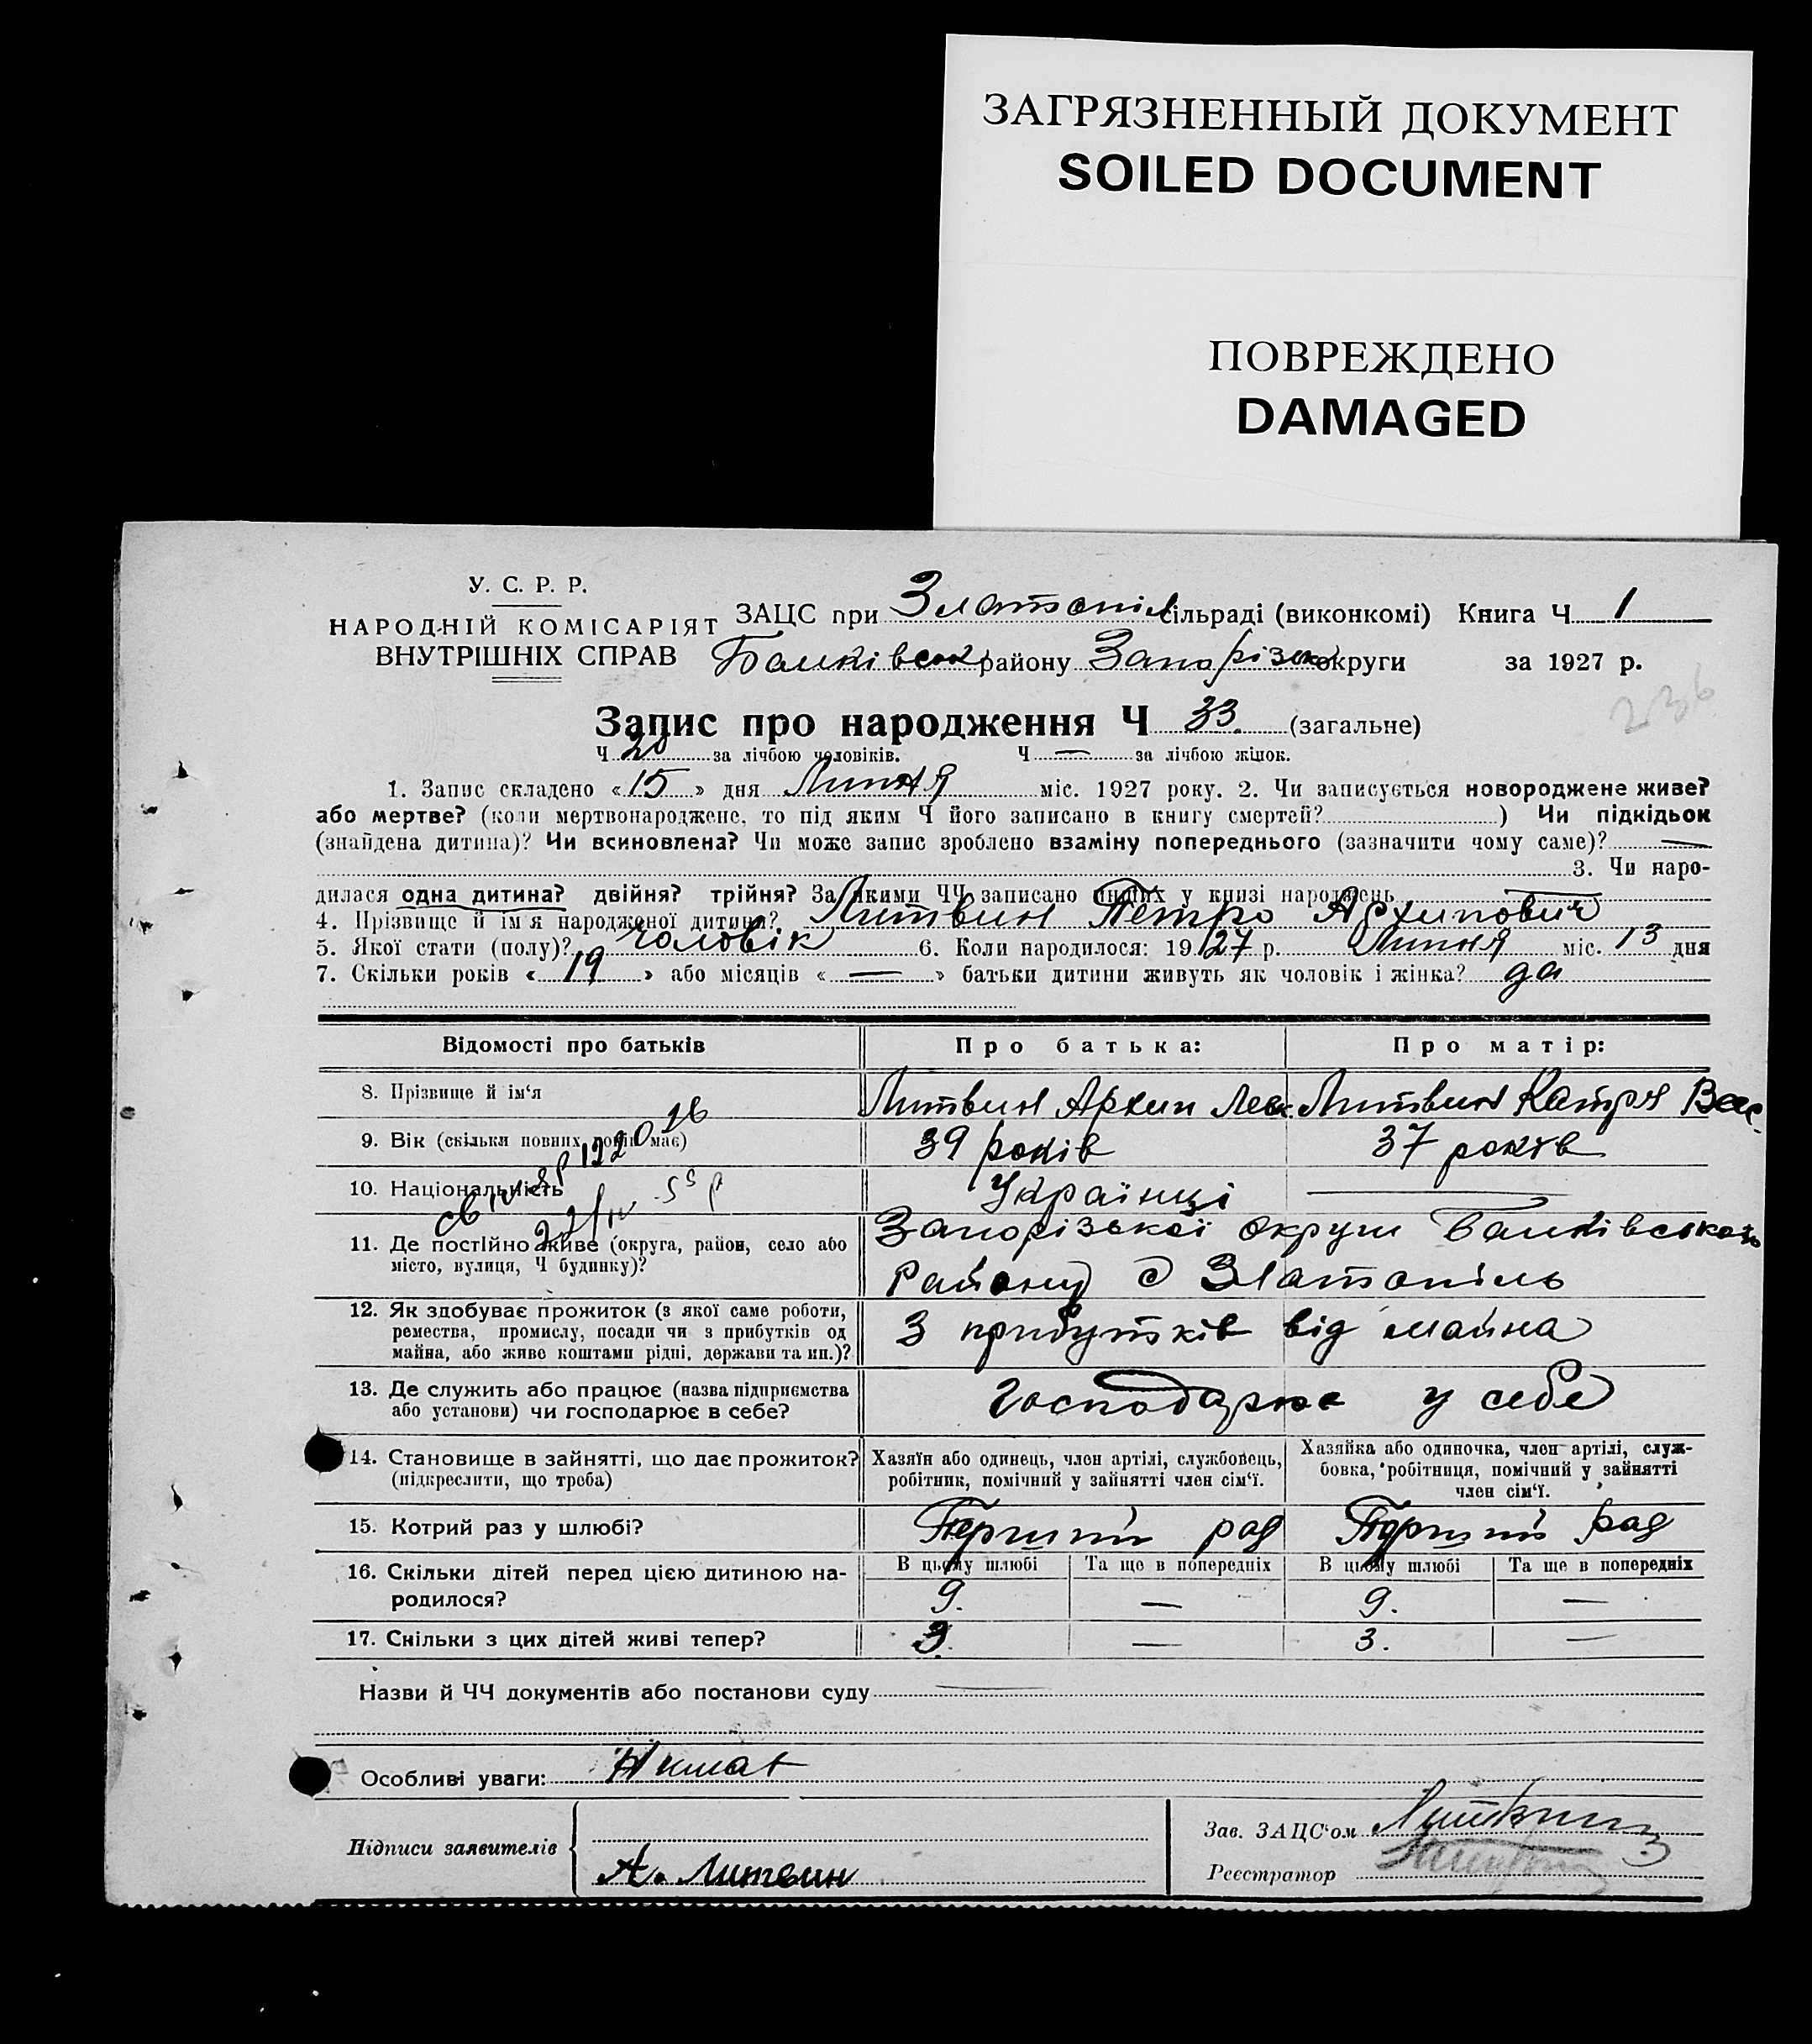 ЗАГРЯЗНЕННЫЙ ДОКУМЕНТ
SOILED DOCUMENT
ПОВРЕЖДЕНО
DAMAGED
У. С. Р. Р.
НАРОДНІЙ КОМІСАРІЯТ
ВНУТРІШНІХ СПРАВ
ЗАЦС при Златопіл сільраді (виконкомі) Книга Ч 1
Балківськ району Запорізьк округи за 1927 р.
236
Запис про народження Ч 33. (загальне)
Ч 20 за лічбою чоловіків. Ч — за лічбою жінок.
1. Запис складено «15» дня Липня міс. 1927 року. 2. Чи записується новороджене живе?
або мертве? (коли мертвонароджене, то під яким Ч його записано в книгу смертей? ) Чи підкідьок
(знайдена дитина)? Чи всиновлена? Чи може запис зроблено взаміну попереднього (зазначити чому саме)? —
3. Чи наро-
дилася одна дитина? двійня? трійня? За якими ЧЧ записано инших у книзі народжень —
4. Прізвище й ім'я народженої дитини? Литвин Петро Архипович
5. Якої стати (полу)? чоловік 6. Коли народилося: 1927 р. Липня міс. 13 дня
7. Скільки років «19» або місяців «—» батьки дитини живуть як чоловік і жінка? да
Відомості про батьків Про батька: Про матір:
8. Прізвище й ім'я Литвин Архип Лев. Литвин Катря Вас.
9. Вік (скільки повних років має) 39 років 37 років
10. Національність Українці —
11. Де постійно живе (округа, район, село або Запорізької округи Балківського
місто, вулиця, Ч будинку)? Району с Златопіль
12. Як здобуває прожиток (з якої саме роботи,
ремества, промислу, посади чи з прибутків од З прибутків від майна
майна, або живе коштами рідні, держави та ин.)?
13. Де служить або працює (назва підприємства
або установи) чи господарює в себе? Господарює у себе
14. Становище в зайнятті, що дає прожиток? Хазяїн або одинець, член артілі, службовець, Хазяйка або одиночка, член артілі, служ-
(підкреслити, що треба) робітник, помічний у зайнятті член сім'ї. бовка, робітниця, помічний у зайнятті
член сім'ї.
15. Котрий раз у шлюбі? Перший раз Перший раз
16. Скільки дітей перед цією дитиною на- В цьому шлюбі Та ще в попередніх В цьому шлюбі Та ще в попередніх
родилося? 9. — 9. —
17. Скільки з цих дітей живі тепер? 3. — 3. —
Назви й ЧЧ документів або постанови суду —
Особливі уваги: Нимає
Підписи заявителів А. Литвин
Зав. ЗАЦС'ом
Реєстратор